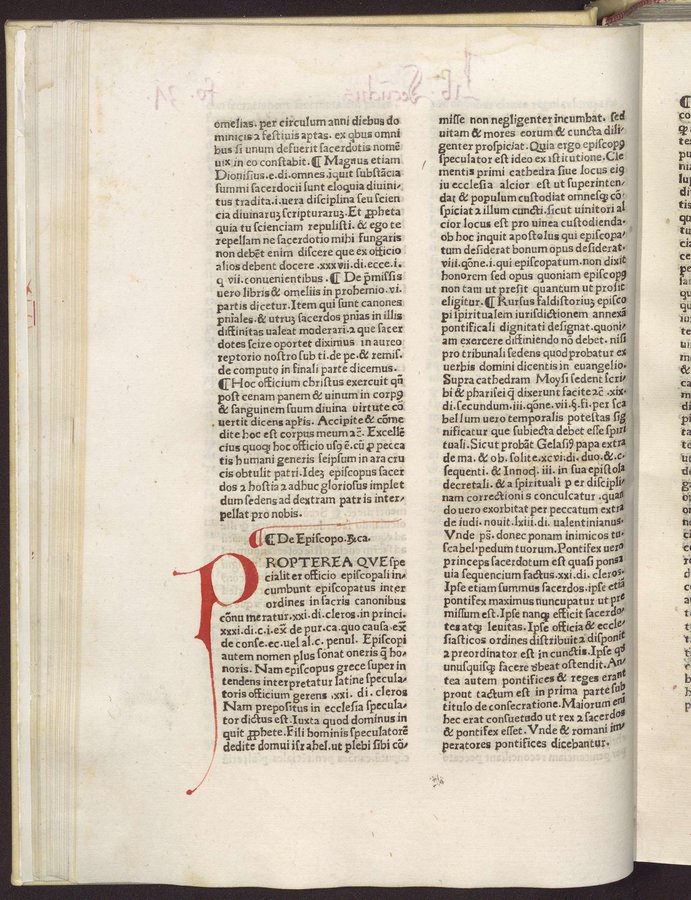 omelias. per circulum anni diebus do
minicis ⁊ festiuis aptas. ex qbus omni
bus si unum defuerit sacerdotis nomē
uix in eo constabit. ¶ Magnus etiam
Dionisius .e. di. omnes. īquit substācia
summi sacerdocii sunt eloquia diuini-
tus tradita. i. uera disciplina seu scien
cia diuinaruꝫ scripturaruꝫ. Et ꝓpheta
quia tu scienciam repulisti. & ego te
repellam ne sacerdotio mihi fungaris
non debēt enim discere que ex officio
alios debent docere .xxxvii. di. ecce. i.
q vii. conuenientibus. ¶ De p̄missis
uero libris & omeliis in prohemio .vi.
partis dicetur. Item qui sunt canones
pn̄iales. & utruꝫ sacerdos pn̄ias in illis
diffinitas ualeat moderari. ⁊ que sacer
dotes scire oportet diximus in aureo
reptorio nostro sub ti. de pe. & remiſ.
de computo in finali parte dicemus.
¶ Hoc officium christus exercuit qn̄
post cenam panem & uinum in corpꝯ
& sanguinem suum diuina uirtute cō
uertit dicens aplis. Accipite & cōme
dite hoc est corpus meum ⁊c̄. Excellē
cius quoqꝫ hoc officio usꝯ ē. cū ꝓ pecca
tis humani generis seipsum in ara cru
cis obtulit patri. Ideꝫ episcopus sacer
dos ⁊ hostia ⁊ adhuc gloriosus implet
dum sedens ad dextram patris inter-
pellat pro nobis.
¶ De Episcopo. R̄ca.
PROPTEREA QVE spe
cialiter officio episcopali in-
cumbunt episcopatus inter
ordines in sacris canonibus
cōnumeratur .xxi. di. cleros. in princi.
xxxi. di. c. i. ex̄ de pur. ca. quo causa. ex̄
de conse. ec. uel al. c. penul. Episcopi
autem nomen plus sonat oneris q̄ ho-
noris. Nam episcopus grece superin
tendens interpretatur latine specula-
toris officium gerens .xxi. di. cleros
Nam prepositus in ecclesia specula-
tor dictus est. Iuxta quod dominus in
quit ꝓphete. Fili hominis speculatorē
dedite domui israhel. ut plebi sibi cō-
misse non negligenter incumbat. sed
uitam & mores eorum & cuncta dili-
genter prospiciat. Quia ergo episcopꝯ
speculator est ideo ex istitutione. Cle
mentis primi cathedra siue locus eiꝯ
iu ecclesia alcior est ut superinten-
dat & populum custodiat omnesqꝫ cō-
spiciat ⁊ illum cuncti. sicut uinitori al
cior locus est pro uinea custodienda.
ob hoc inquit apostolus qui episcopa-
tum desiderat bonum opus desiderat.
viii. qōne. i. qui episcopatum. non dixit
honorem sed opus quoniam episcopꝯ
non tam ut presit quantum ut prosit
eligitur. ¶ Rursus faldistoriuꝫ episco
pi spiritualem iurisdictionem annexā
pontificali dignitati designat. quoni-
am exercere diffiniendo nō debet. nisi
pro tribunali sedens quod probatur ex
uerbis domini dicentis in euangelio.
Supra cathedram Moysi sedent scri-
bi & pharisei q̄ dixerunt facite ⁊c̄ .xix.
di. secundum. iii. qōne. vii. §. fi. per sca
bellum uero temporalis potestas sig
nificatur que subiecta debet esse spiri
tuali. Sicut probāt Gelasiꝯ papa extra
de ma. & ob. solite. xcvi. di. duo. & c.
sequenti. & Innoc̄. iii. in sua epistola
decretali. & a spirituali per discipli-
nam correctionis conculcatur .quan
do uero exorbitat per peccatum extra
de iudi. nouit. lxiii. di. ualentinianus.
Vnde ps̄. donec ponam inimicos tu-
scabel. pedum tuorum. Pontifex uero
princeps sacerdotum est quasi ponsa
uia sequencium factus. xxi. di. cleros.
Ipse etiam summus sacerdos. ipse etiā
pontifex maximus nuncupatur ut pre
missum est. Ipse nanqꝫ efficit sacerdo-
tes atqꝫ leuitas. Ipse officia & eccle-
siasticos ordines distribuit ⁊ disponit
⁊ preordinator est in cunctis. Ipse qd̄
unusquisqꝫ facere debeat ostendit. An-
tea autem pontifices & reges erant
prout tactum est in prima parte sub
titulo de consecratione. Maiorum eni
hec erat consuetudo ut rex ⁊ sacerdos
& pontifex esset. Vnde & romani im-
peratores pontifices dicebantur.